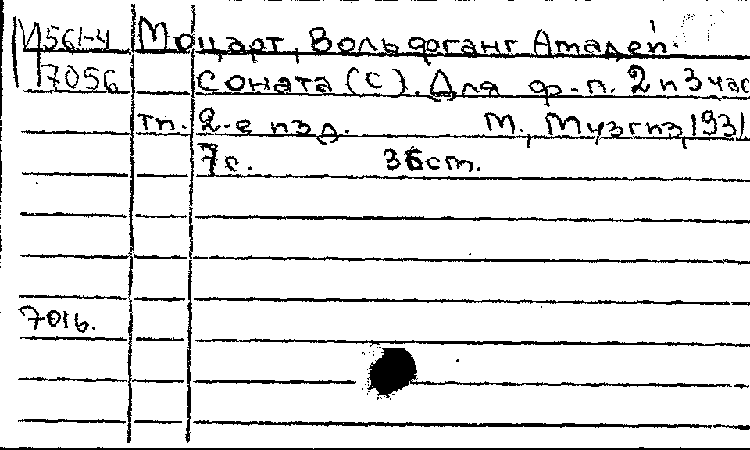 М561-4 Моцарт, Вольфганг Амадей.
7056 Соната (С). Для ф.-п. 2 и 3 час
ти. 2-е изд. М., Музгиз, 1931
7 с. 36 см.
7016.